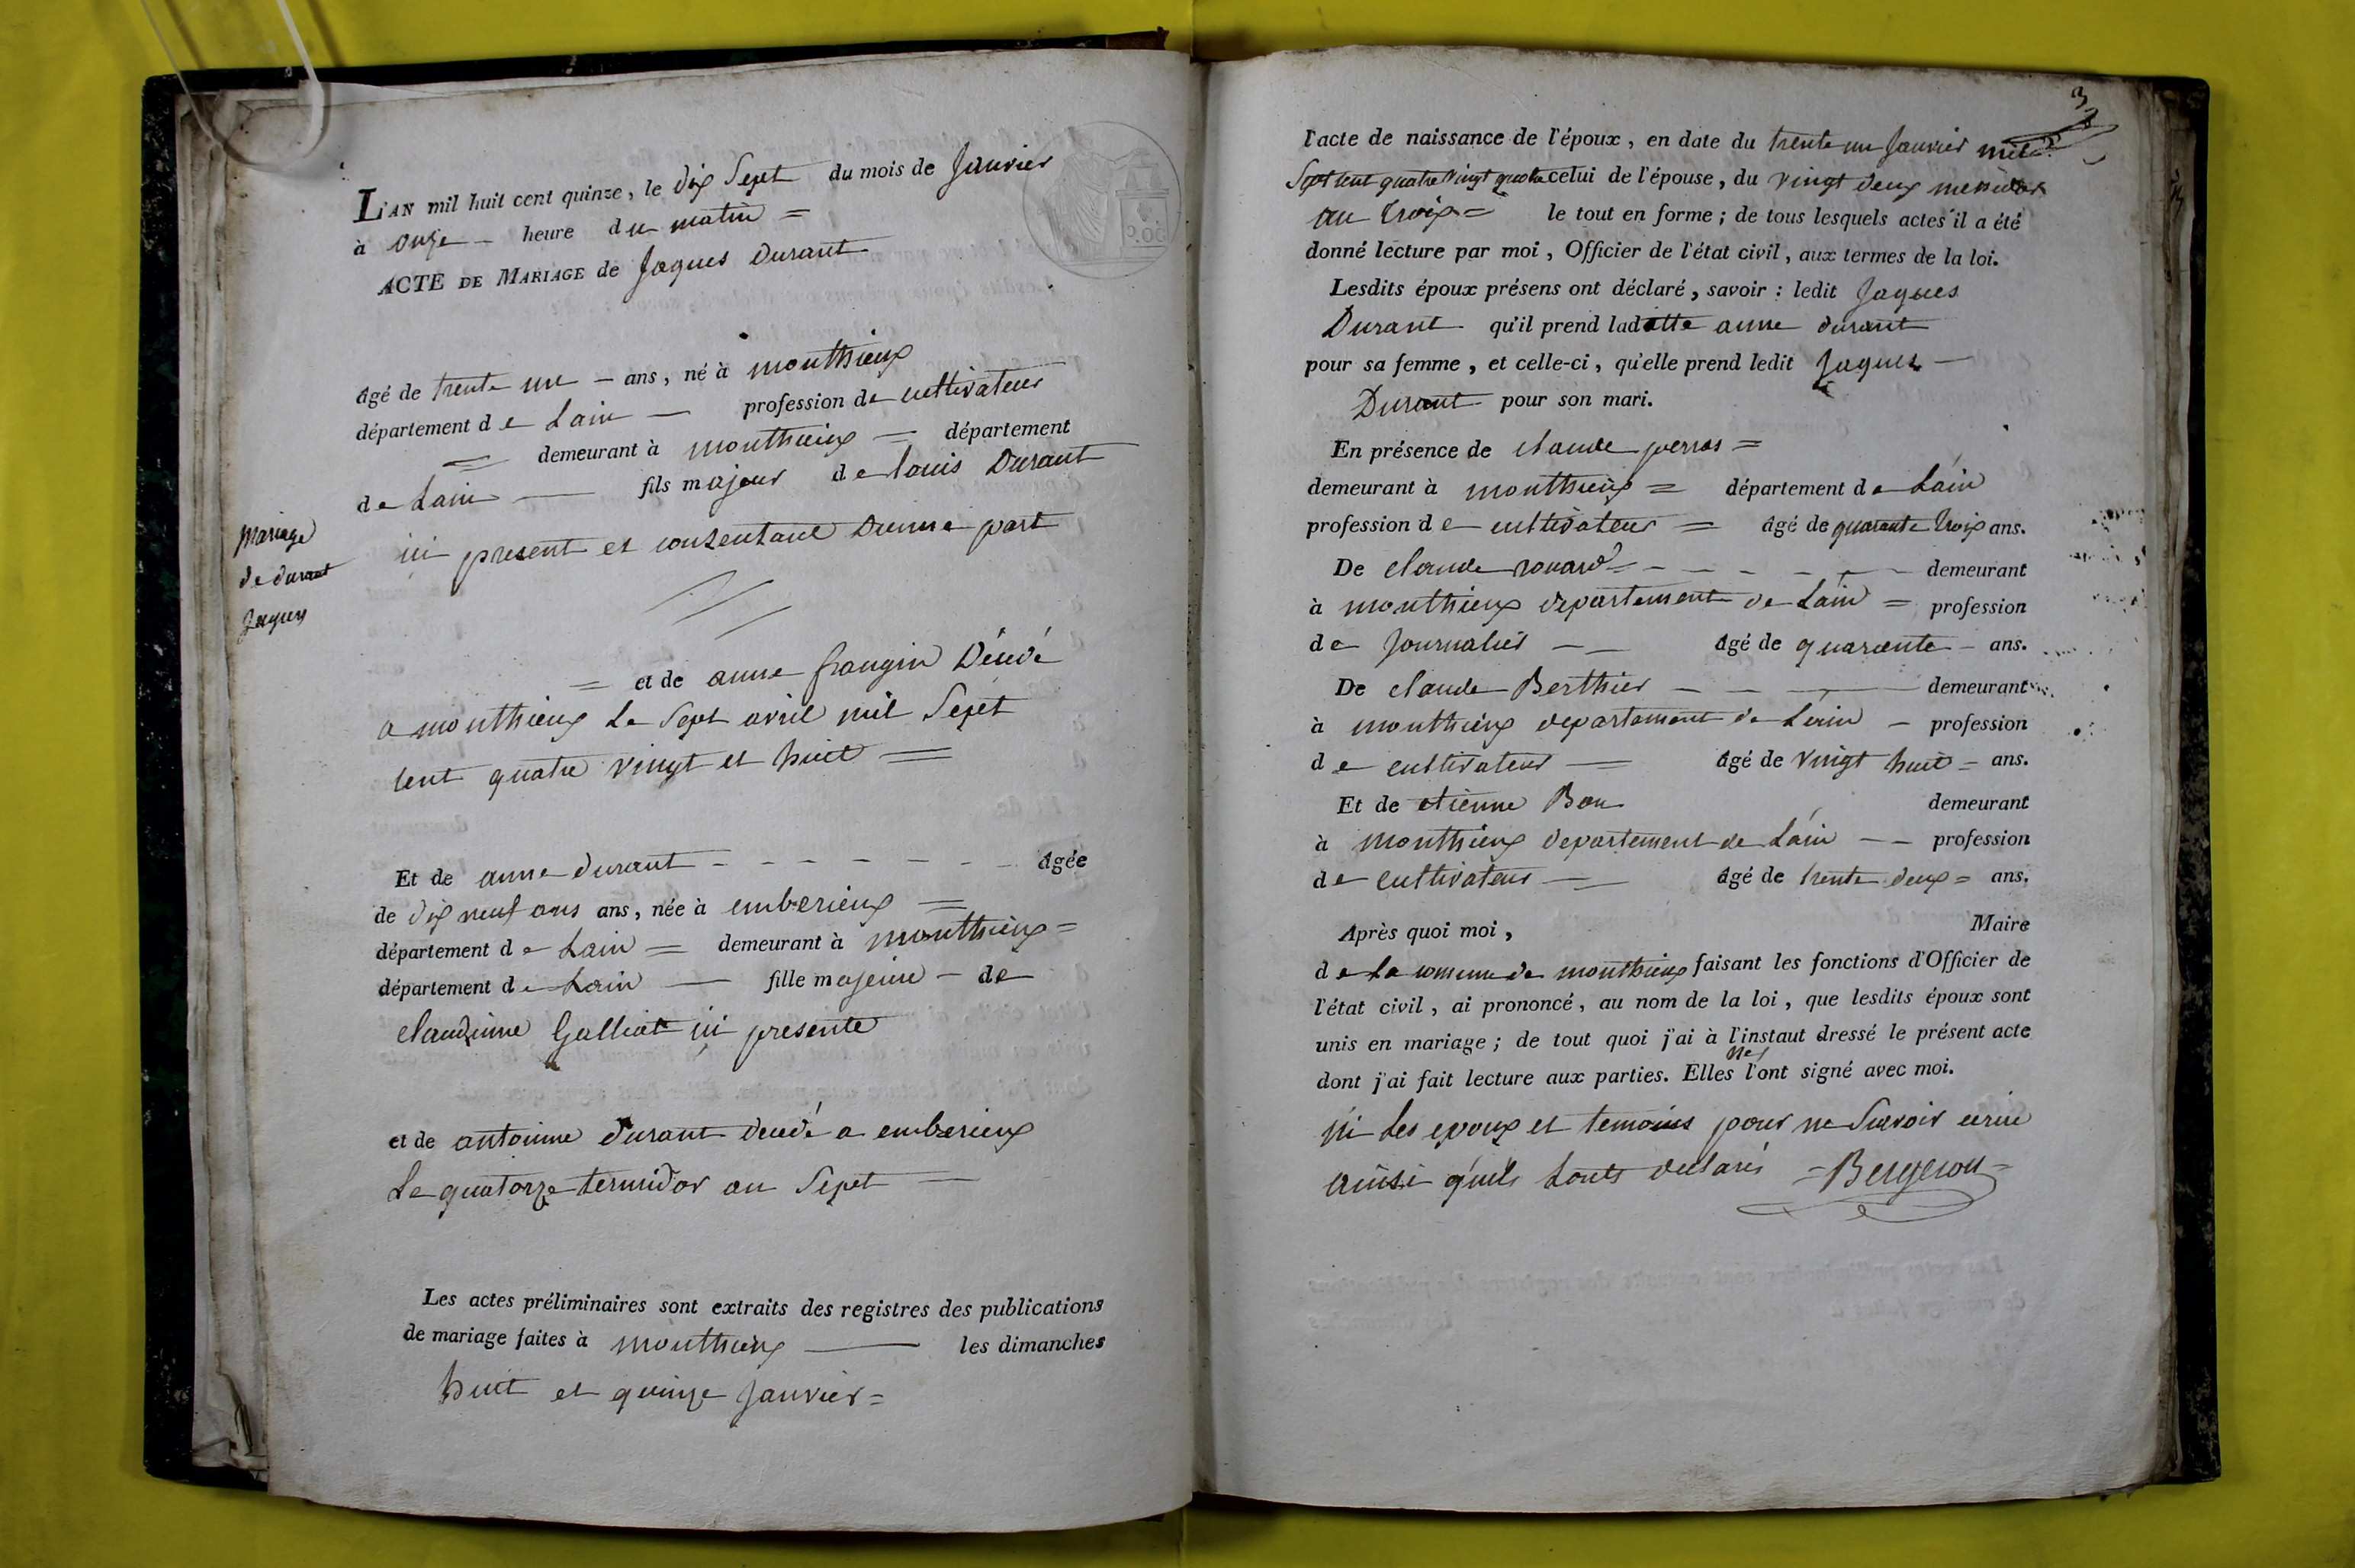 L'AN mil huit cent quinze, le dix Sept du mois de Janvier
à onze - heure du matin =
ACTE DE MARIAGE de Jaques Durant
âgé de trente un - ans, né à monthieux
département de Lain - profession de cultivateur
= demeurant à monthieux = département
de Lain - fils majeur de louis Durant
ici present et consentant Dunne part
Mariage
de durant
Jaques
= et de anne frangin Décédé
a monthieux Le Sept avril mil Sept
cent quatre vingt et huit =
Et de anne durant - - - - - - - âgée
de dix neuf ans ans, née à emberieux =
département de Lain = demeurant à monthieux =
département de Lain - fille majeure - de
claudinne Galliat ici presente
et de antoinne durant decedé a emberieux
Le quatorze termidor an Sept -
Les actes préliminaires sont extraits des registres des publications
de mariage faites à monthieux - les dimanches
huit et quinze Janvier =
3
l'acte de naissance de l'époux, en date du trente un Janvier mil
Sept cent quatre vingt quatre celui de l'épouse, du vingt deux messidor
an trois = le tout en forme ; de tous lesquels actes il a été
donné lecture par moi, Officier de l'état civil, aux termes de la loi.
Lesdits époux présens ont déclaré, savoir : ledit Jaques
Durant qu'il prend ladotte anne durant
pour sa femme, et celle-ci, qu'elle prend ledit Jaques -
Durant pour son mari.
En présence de claude perras =
demeurant à monthieux = département de Lain
profession de cultivateur = âgé de quarante trois ans.
De claude = - - - - - - demeurant
à monthieux departement de Lain = profession
de Journalier - - âgé de quarante - ans.
De claude Berthier - - - demeurant
à monthieux departement de Lain - profession
de cultivateur - âgé de vingt huit = ans.
Et de etienne Bon demeurant
à monthieux departement de Lain - - profession
de cultivateur - âgé de trente deux = ans.
Après quoi moi, Maire
de La commune de monthieux faisant les fonctions d'Officier de
l'état civil, ai prononcé, au nom de la loi, que lesdits époux sont
unis en mariage ; de tout quoi j'ai à l'instaut dressé le présent acte
dont j'ai fait lecture aux parties. Elles ne l'ont signé avec moi.
ni Les epoux et temoins pour ne Savoir ecrire
ainsi qu'ils Lonts declarés - Bergeron -